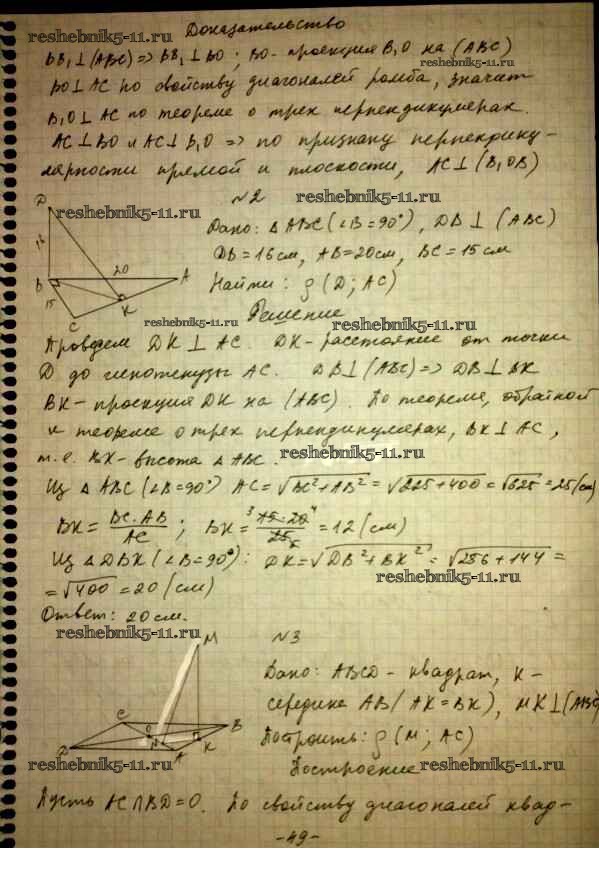 Доказательство
reshebnik5-11.ru
BB₁⊥(ABC) => BB₁⊥BO; BO - проекция B₁O на (ABC)
BO⊥AC по свойству диагоналей ромба, значит
B₁O⊥AC по теореме о трех перпендикулярах.
reshebnik5-11.ru
AC⊥BO и AC⊥B₁O => по признаку перпендику-
лярности прямой и плоскости, AC⊥(B₁OB)
N2
reshebnik5-11.ru
D
20
B
A
15
C
K
Дано: △ABC (∠B=90°), DB⊥(ABC)
DB=16см, AB=20см, BC=15см
Найти: ρ(D; AC)
reshebnik5-11.ru
Решение
reshebnik5-11.ru
Проведем DK⊥AC. DK - расстояние от точки
D до гипотенузы AC. DB⊥(ABC) => DB⊥BK
BK - проекция DK на (ABC). По теореме, обратной
к теореме о трех перпендикулярах, BK⊥AC,
reshebnik5-11.ru
т.е. BK - высота △ABC.
Из △ABC (∠B=90°) AC=√BC²+AB² = √225+400 = √625 = 25(см)
BK = BC·AB/AC; BK = ³15·20⁴/25₅ = 12(см)
reshebnik5-11.ru
Из △DBK (∠B=90°): DK=√DB²+BK² = √256+144 =
reshebnik5-11.ru
= √400 = 20(см)
Ответ: 20см.
reshebnik5-11.ru
N3
M
C
O
B
N
D
A
K
Дано: ABCD - квадрат, K -
середина AB (AK=BK), MK⊥(ABC)
Построить: ρ(M; AC)
reshebnik5-11.ru
Построение
reshebnik5-11.ru
Пусть AC∩BD=O. По свойству диагоналей квад-
-49-